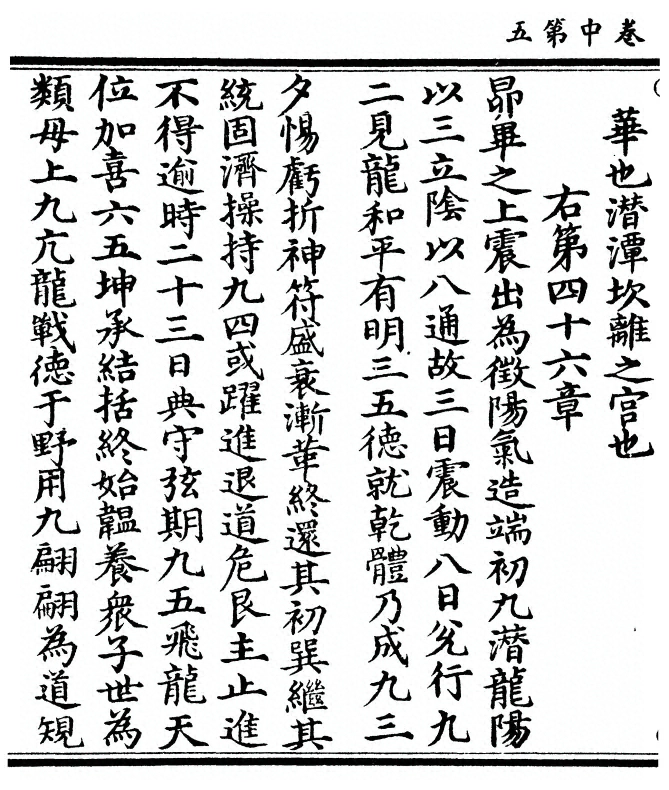 卷中第五
華也潛潭坎離之宮也
右第四十六章
昴畢之上震出為徵陽氣造端初九潛龍陽
以三立陰以八通故三日震動八日兌行九
二見龍和平有明三五德就乾體乃成九三
夕惕虧折神符盛衰漸革終還其初巽繼其
統固濟操持九四或躍進退道危艮主止進
不得逾時二十三日典守弦期九五飛龍天
位加喜六五坤承結括終始韞養衆子世為
類母上九亢龍戰德于野用九翩翩為道䂓